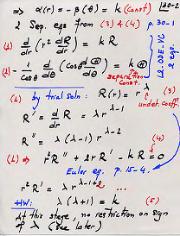 ⇒ α(r) = -β(θ) = k (const) L20-2
2 Seq. eqs from (3) & (4) p. 30-1
(1) d/dr (r² dR/dr) = k R
(2) 1/cosθ d/dθ (cosθ dΘ/dθ) = k Θ
separation const.
(1) by trial soln: R(r) = r^λ (3)
undet. coeff.
R' = λ r^(λ-1)
R'' = λ (λ-1) r^(λ-2) (4)
(1) ⇒ r² R'' + 2r R' - k R = 0
Euler eq. p. 15-4.
r² R' = λ r^(λ+1) ...
HW: λ (λ+1) = k (5)
At this stage, no restriction on sign
of λ (See later)